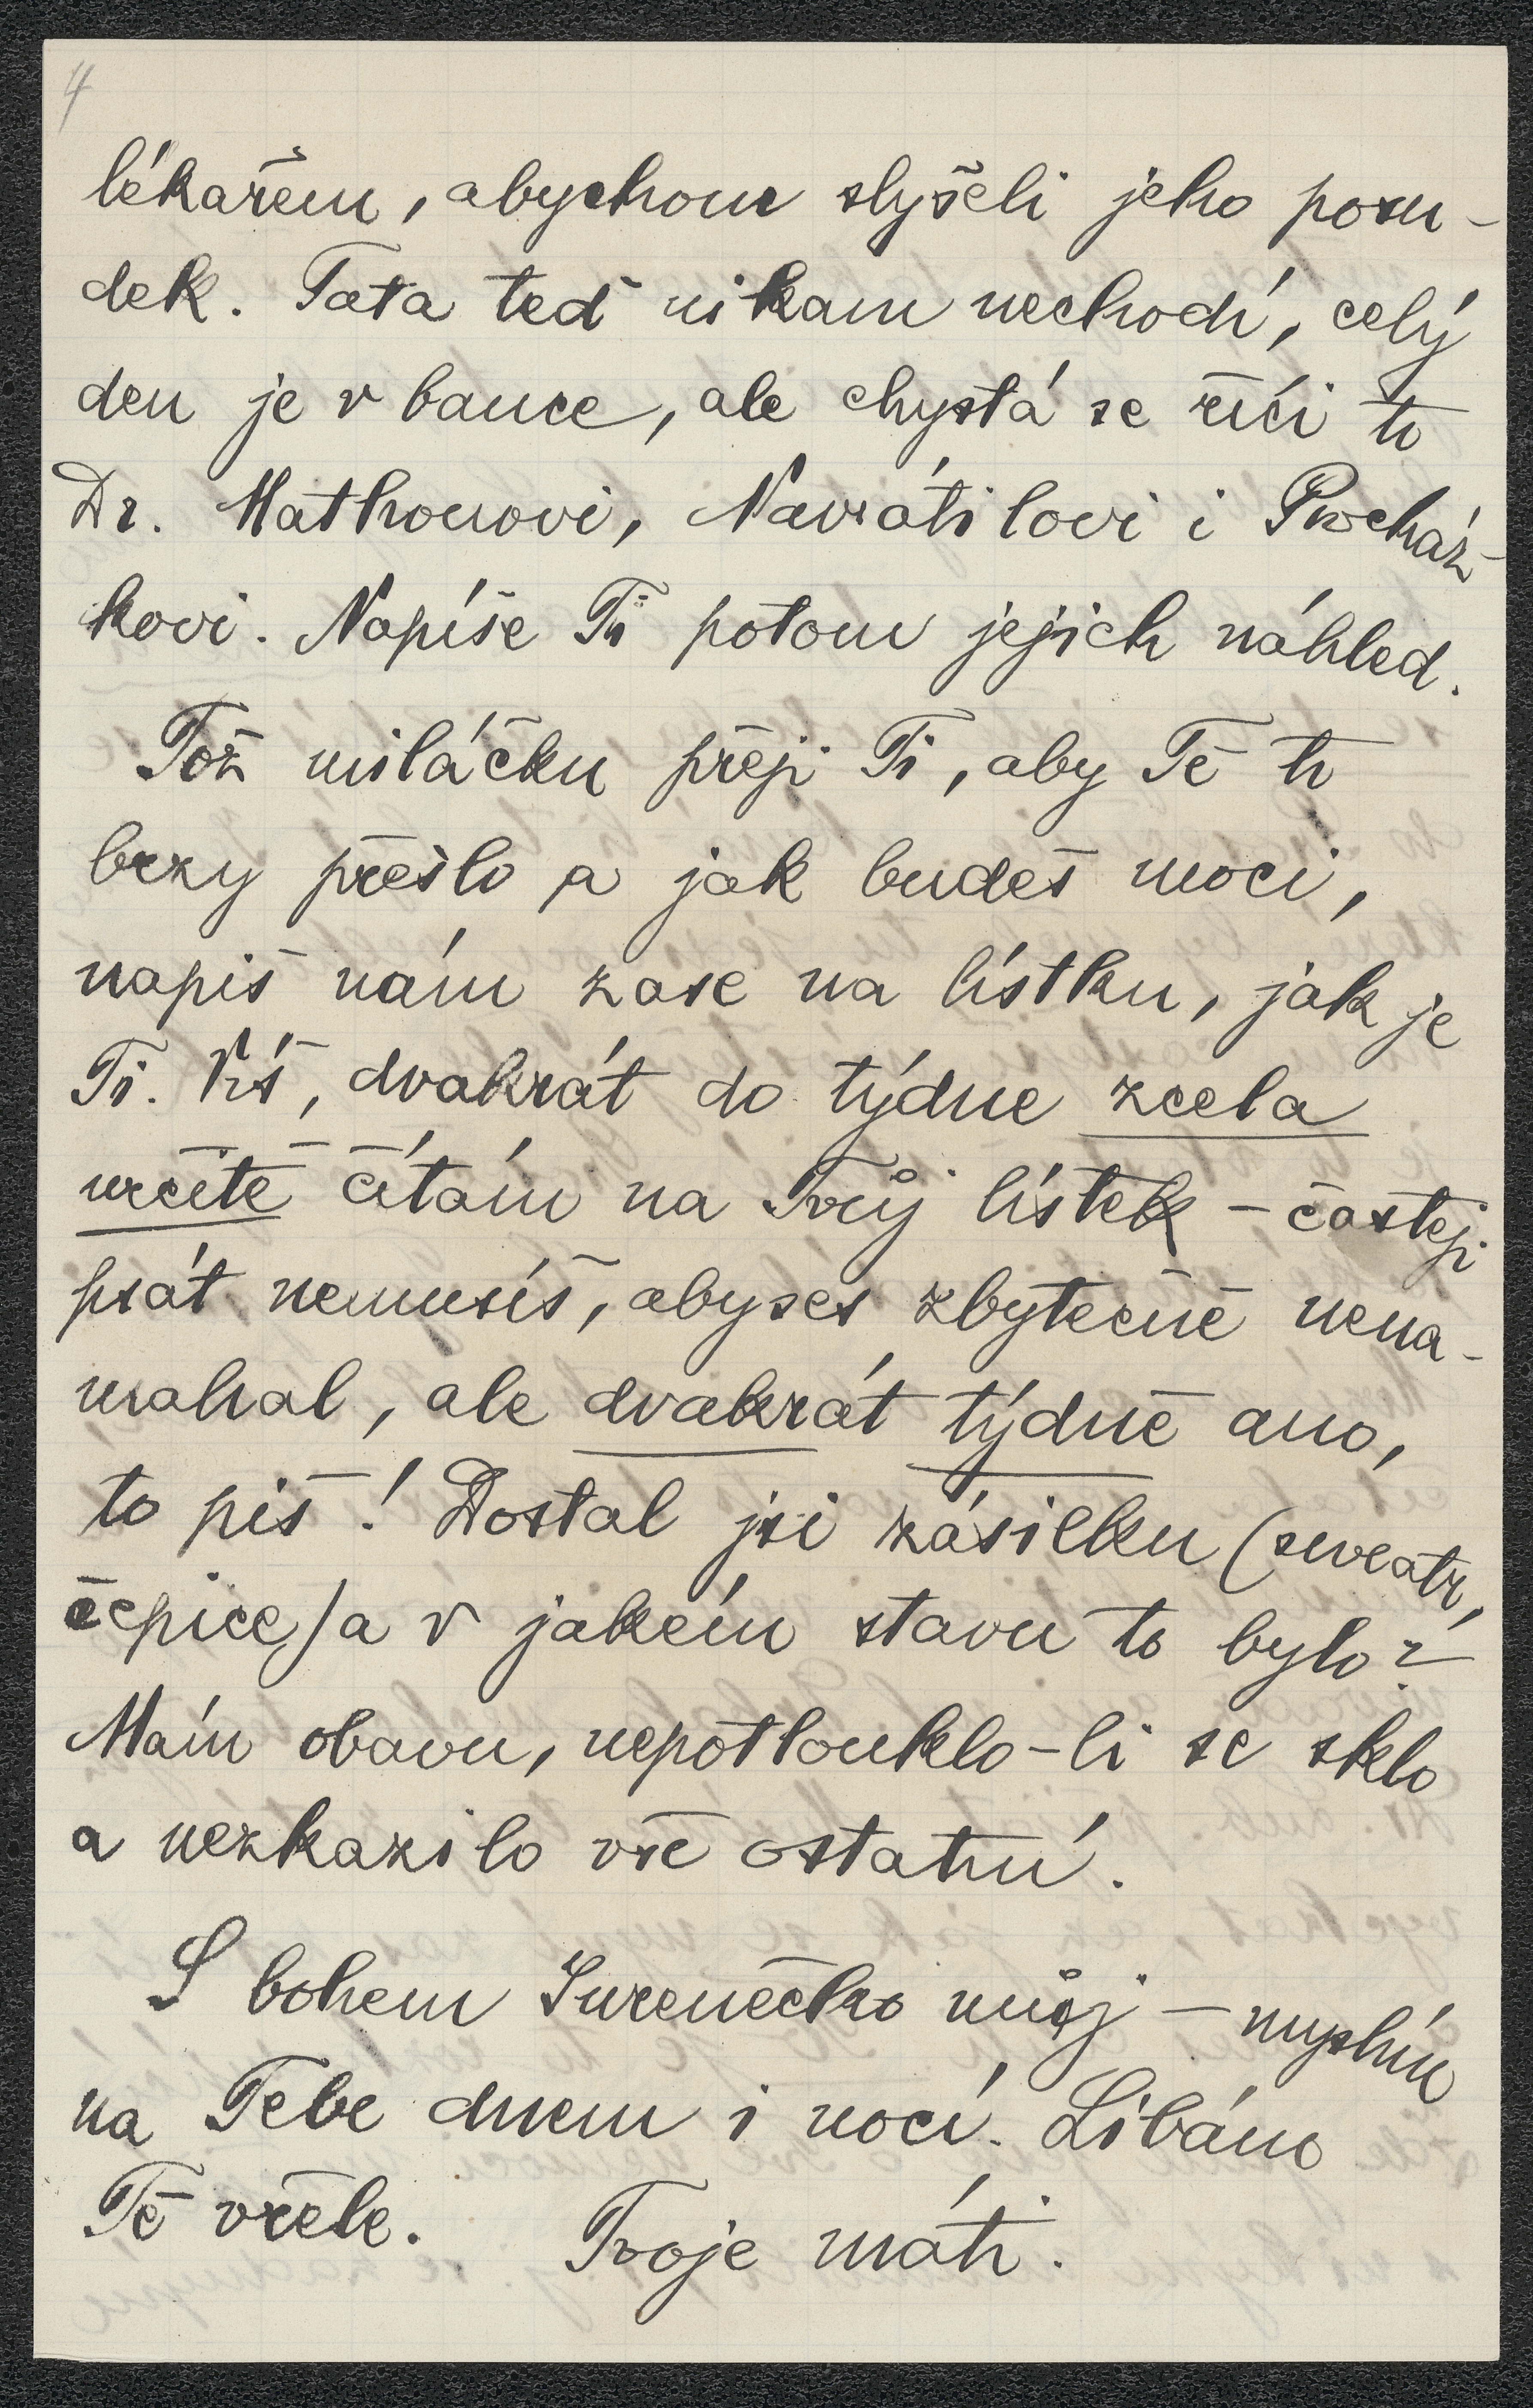 4
lékařem, abychom slyšeli jeho posu-
dek. Tata teď nikam nechodí, celý
den je v bance, ale chystá se říci to
Dr. Mathonovi, Navrátilovi i Procház-
kovi. Napíše Ti potom jejich náhled.
Tož miláčku přeji Ti, aby Tě to
brzy přešlo a jak budeš moci,
napiš nám zase na lístku, jak je
Ti. Piš, dvakrát do týdne zcela
určitě čítám na Tvůj lístek – častěji
psát nemusíš, abyses zbytečně nena-
mahal, ale dvakrát týdně ano,
to piš! Dostal jsi zásilku (sweatr,
čepice) a v jakém stavu to bylo?
Mám obavu, nepotlouklo-li se sklo
a nezkazilo vše ostatní.
S bohem Surenečko můj – myslím
na Tebe dnem i nocí. Líbám
Tě vřele. Tvoje máti.